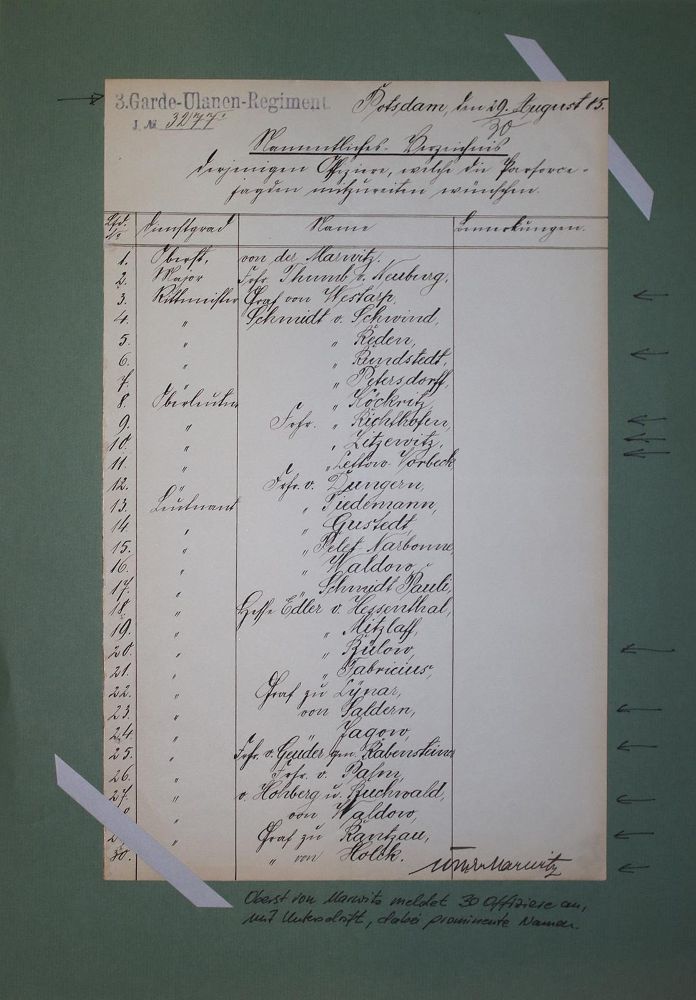 3. Garde-Ulanen-Regiment.
J. № 3277.
Potsdam, den 29. August 05.
30
Namentliches Verzeichnis
derjenigen Offiziere, welche die Parforce-
jagden mitzureiten wünschen.
Lfd. № Dienstgrad Name Bemerkungen.
1. Oberst, von der Marwitz.
2. Major Frhr. Thumb v. Neuburg,
3. Rittmeister Graf von Westarp,
4. " Schmidt v. Schwind,
5. " " Reden,
6. " " Rundstedt,
7. " " Petersdorff,
8. Oberleutn. " Köckritz,
9. " Frhr. " Richthofen,
10. " " Zitzewitz,
11. " " Lettow-Vorbeck
12. " Frhr. v. Dungern,
13. Leutnant " Tiedemann,
14. " " Gustedt,
15. " " Pelet-Narbonne,
16. " " Waldow,
17. " " Schmidt Pauli,
18. " Hesse Edler v. Hessenthal,
19. " " Mitzlaff,
20. " " Bülow,
21. " " Fabricius,
22. " Graf zu Lynar,
23. " von Saldern,
24. " " Jagow,
25. " Frhr. v. Geuder gen. Rabensteiner
26. " Frhr. v. Palm,
27. " v. Hohberg u. Buchwald,
" von Waldow,
" Graf zu Rantzau,
30. " " von Holck.
v. d. Marwitz
Oberst von Marwitz meldet 30 Offiziere an,
mit Unterschrift, dabei prominente Namen.